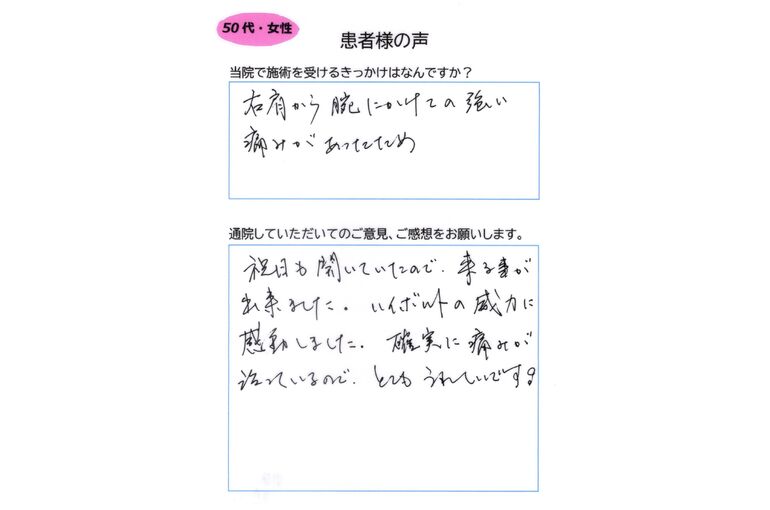 50代・女性
患者様の声
当院で施術を受けるきっかけはなんですか？
右肩から腕にかけての強い
痛みがあったため
通院していただいてのご意見、ご感想をお願いします。
祝日も開いていたので、来る事が
出来ました。ハイボルトの威力に
感動しました。確実に痛みが
治っているので、とてもうれしいです！